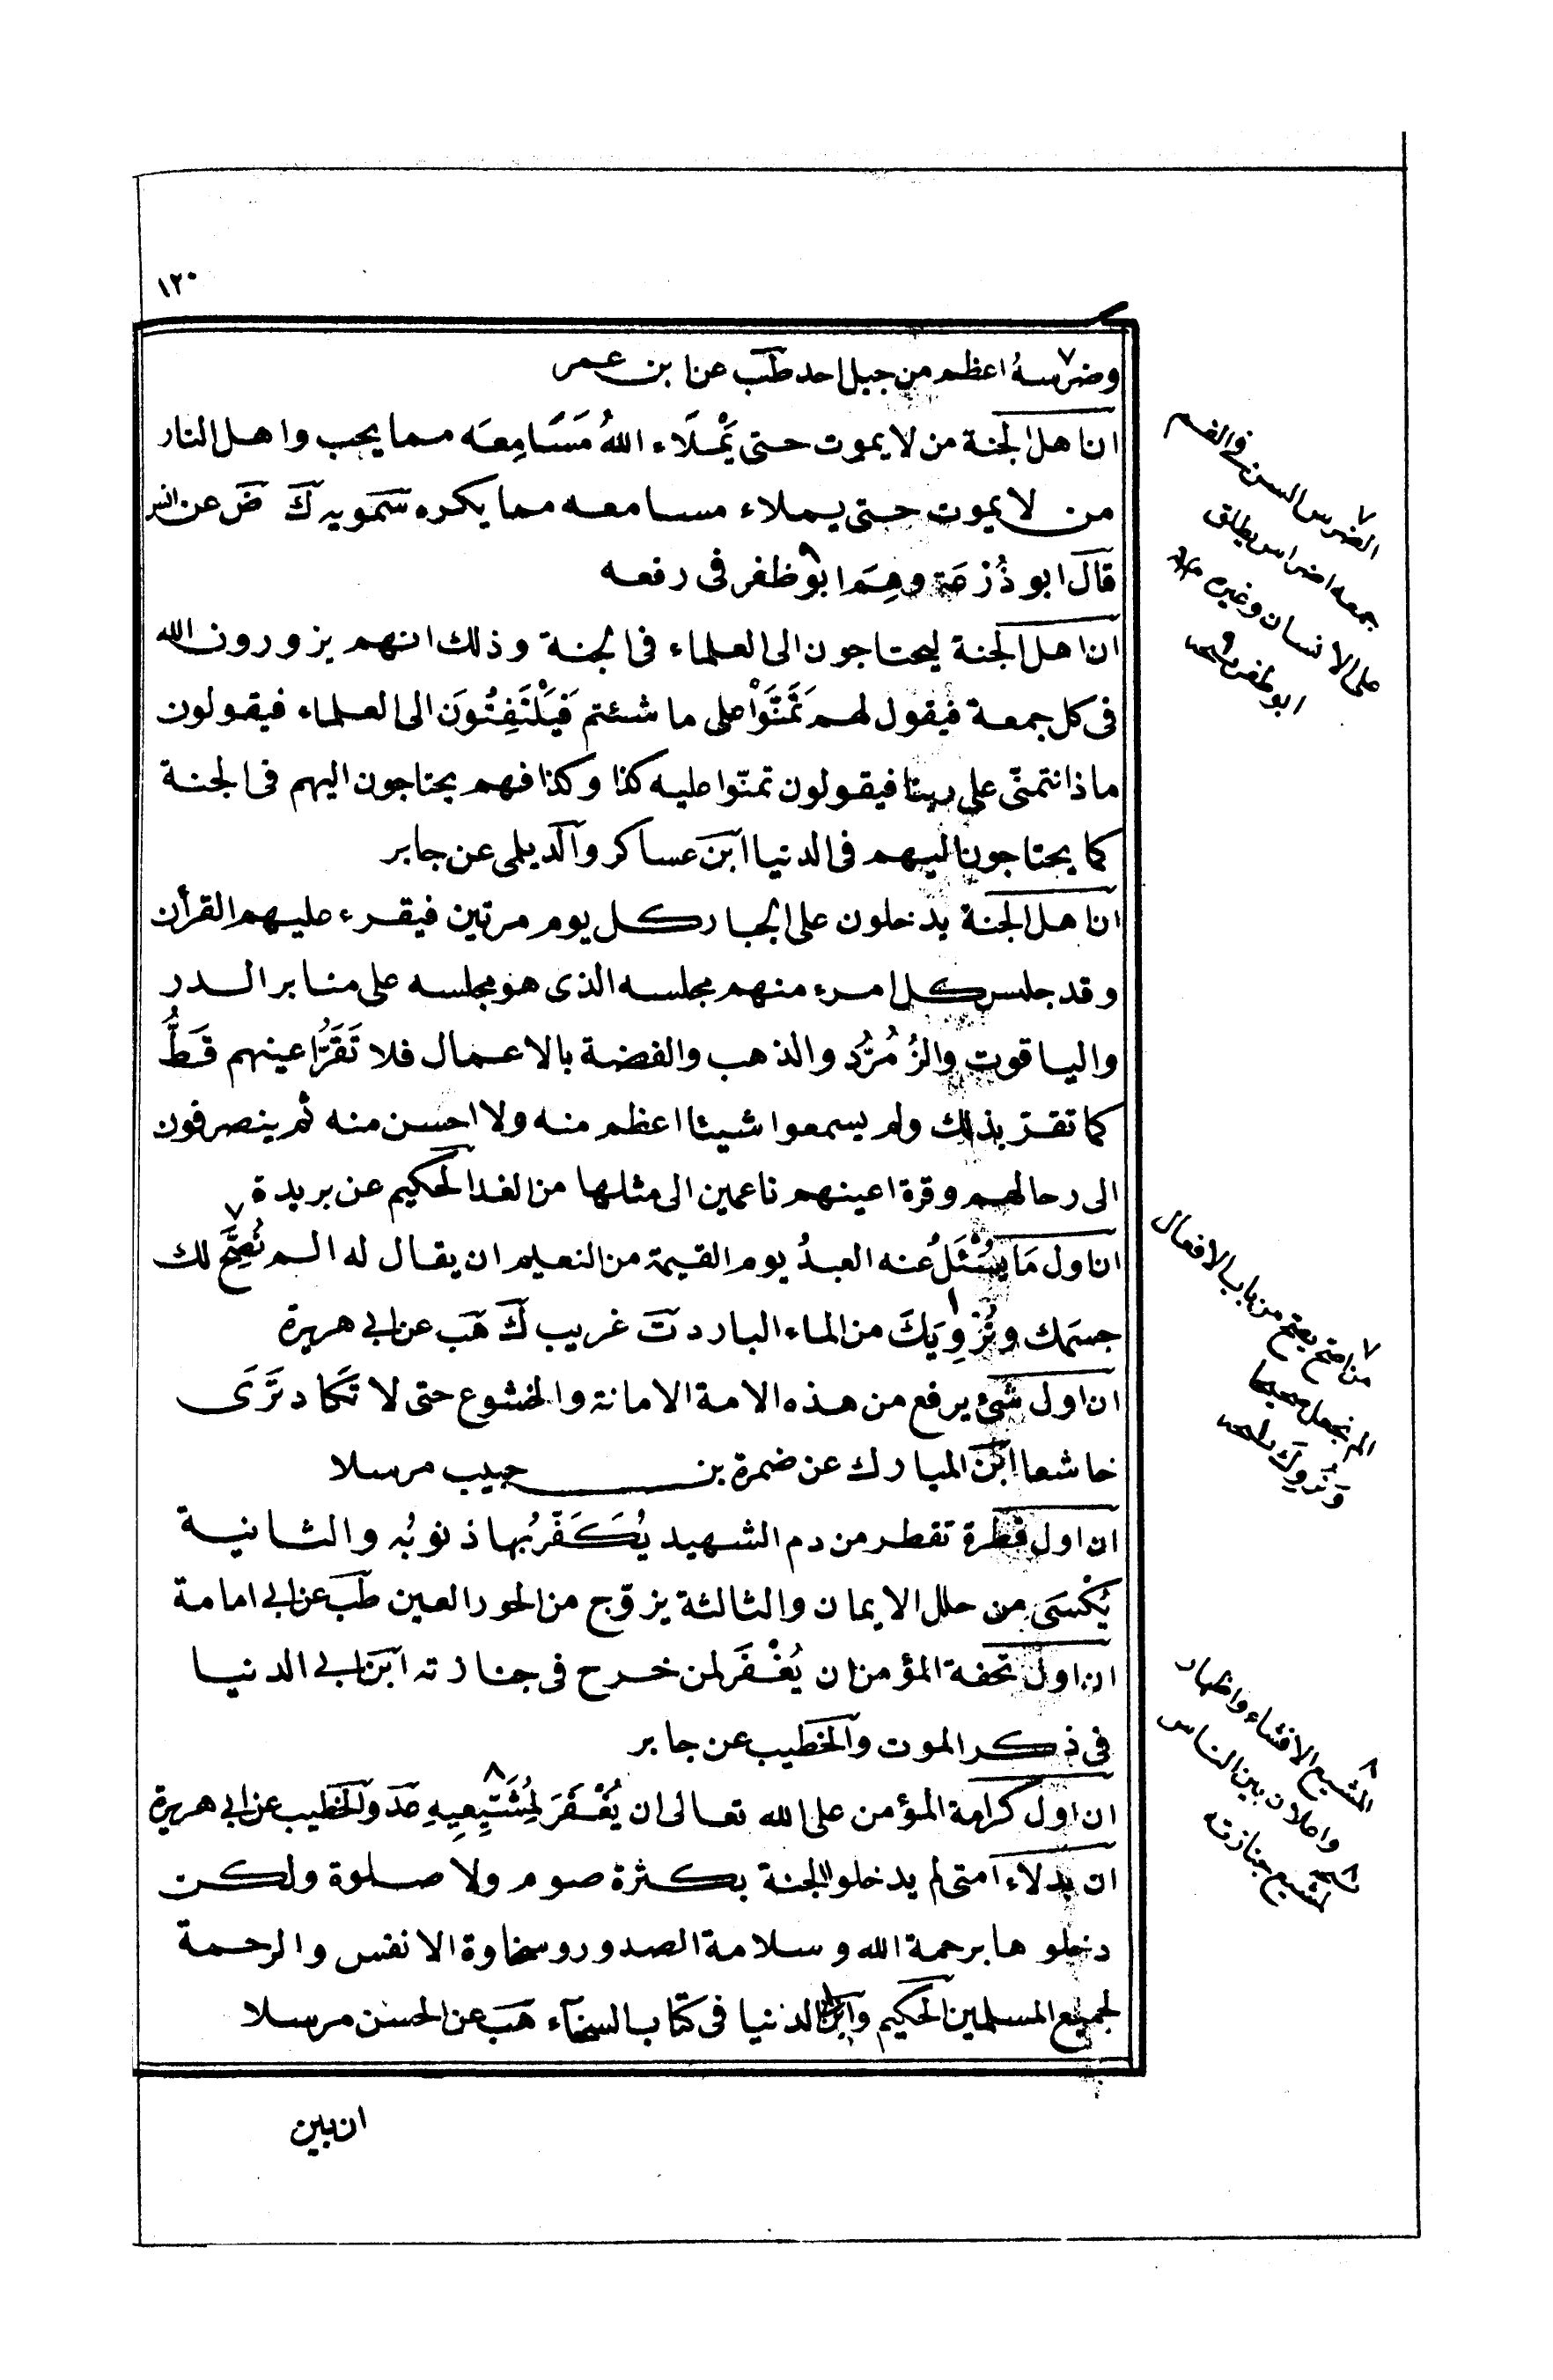 ١٢٠
وضرسه اعظم من جبل احد طب عن ابن عمر
ان اهل الجنة من لا يموت حتى يَمْلَاء اللهُ مَسَامِعَه مما يحب واهل النار
من لا يموت حتى يملاء مسامعه مما يكره سمويه ك ض عن انس
قال ابو ذُرْعَة وهِمَ ابو ظفر فى رفعه
ان اهل الجنة ليحتاجون الى العلماء فى الجنة وذلك انهم يزورون الله
فى كل جمعة فيقول لهم تَمَنَّوْا على ما شئتم فَيَلْتَفِتُونَ الى العلماء فيقولون
ماذا نتمنّى على ربنا فيقولون تمنّوا عليه كذا وكذا فهم يحتاجون اليهم فى الجنة
كما يحتاجون اليهم فى الدنيا ابن عساكر والديلمى عن جابر
ان اهل الجنة يدخلون على الجبار كل يوم مرتين فيقرء عليهم القرأن
وقد جلس كل امرء منهم مجلسه الذى هو مجلسه على منابر الدر
والياقوت والزُمُرُّد والذهب والفضة بالاعمال فلا تَقَرُّ اعينهم قَطُّ
كما تقر بذلك ولم يسمعوا شيئا اعظم منه ولا احسن منه ثم ينصرفون
الى رحالهم وقرة اعينهم ناعمين الى مثلها من الغد الحكيم عن بريدة
ان اول مَا يُسْئَلُ عنه العبدُ يوم القيمة من النعيم ان يقال له الم نُصِحَّ لك
جسمك ونُرْوِيَكَ من الماء البارد ت غريب ك هب عن ابى هريرة
ان اول شئ يرفع من هذه الامة الامانة والخشوع حتى لا تكاد تَرَى
خاشعا ابن المبارك عن ضمرة بن حبيب مرسلا
ان اول قطرة تقطر من دم الشهيد يُكَفَّرُ بها ذنوبُه والثانية
يُكْسَى من حلل الايمان والثالثة يزوّج من الحور العين طب عن ابى امامة
ان اول تحفة المؤمن ان يُغْفَرَ لمن خرج فى جنازته ابن ابى الدنيا
فى ذكر الموت والخطيب عن جابر
ان اول كرامة المؤمن على الله تعالى ان يُغْفَرَ لمُشَيِّعِيهِ عد والخطيب عن ابى هريرة
ان بدلاء امتى لم يدخلوا الجنة بكثرة صوم ولا صلوة ولكن
دخلوها برحمة الله وسلامة الصدور وسخاوة الانفس والرحمة
لجميع المسلمين الحكيم وابن ابى الدنيا فى كتاب السخاء هب عن الحسن مرسلا
ان بين
٧ الضرس السن فى الفم
جمعه اضراس يطلق
على الانسان وغيره
ابو ظفر
٧ من اصح يصح من باب الافعال
الم نجعل صحيحا
ونُرويك
٨ المشيع الافشاء واظهار
واعلان بين الناس
تشييع جنازته